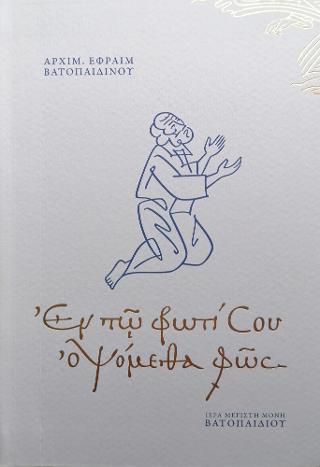 ΑΡΧΙΜ. ΕΦΡΑΙΜ
ΒΑΤΟΠΑΙΔΙΝΟΥ
Ἐν τῷ φωτί Σου
ὀψόμεθα φῶς
ΙΕΡΑ ΜΕΓΙΣΤΗ ΜΟΝΗ
ΒΑΤΟΠΑΙΔΙΟΥ